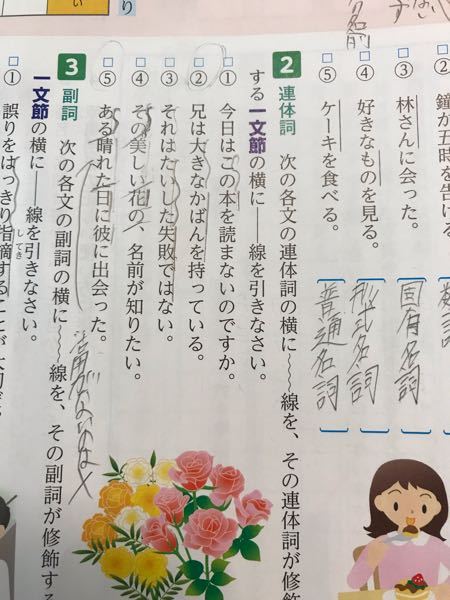 り
ない
す
名前
② 鐘が五時を告げる
③ 林さんに会った。
固有名詞
④ 好きなものを見る。
形式名詞
⑤ ケーキを食べる。
普通名詞
2 連体詞 次の各文の連体詞の横に〜〜線を、その連体詞が修飾
する一文節の横に――線を引きなさい。
① 今日はこの本を読まないのですか。
② 兄は大きなかばんを持っている。
③ それはたいした失敗ではない。
④ その美しい花の、名前が知りたい。
⑤ ある晴れた日に彼に出会った。
3 副詞 次の各文の副詞の横に〜〜線を、その副詞が修飾する
一文節の横に――線を引きなさい。
① 誤りをはっきり指摘することが大切だ
してき